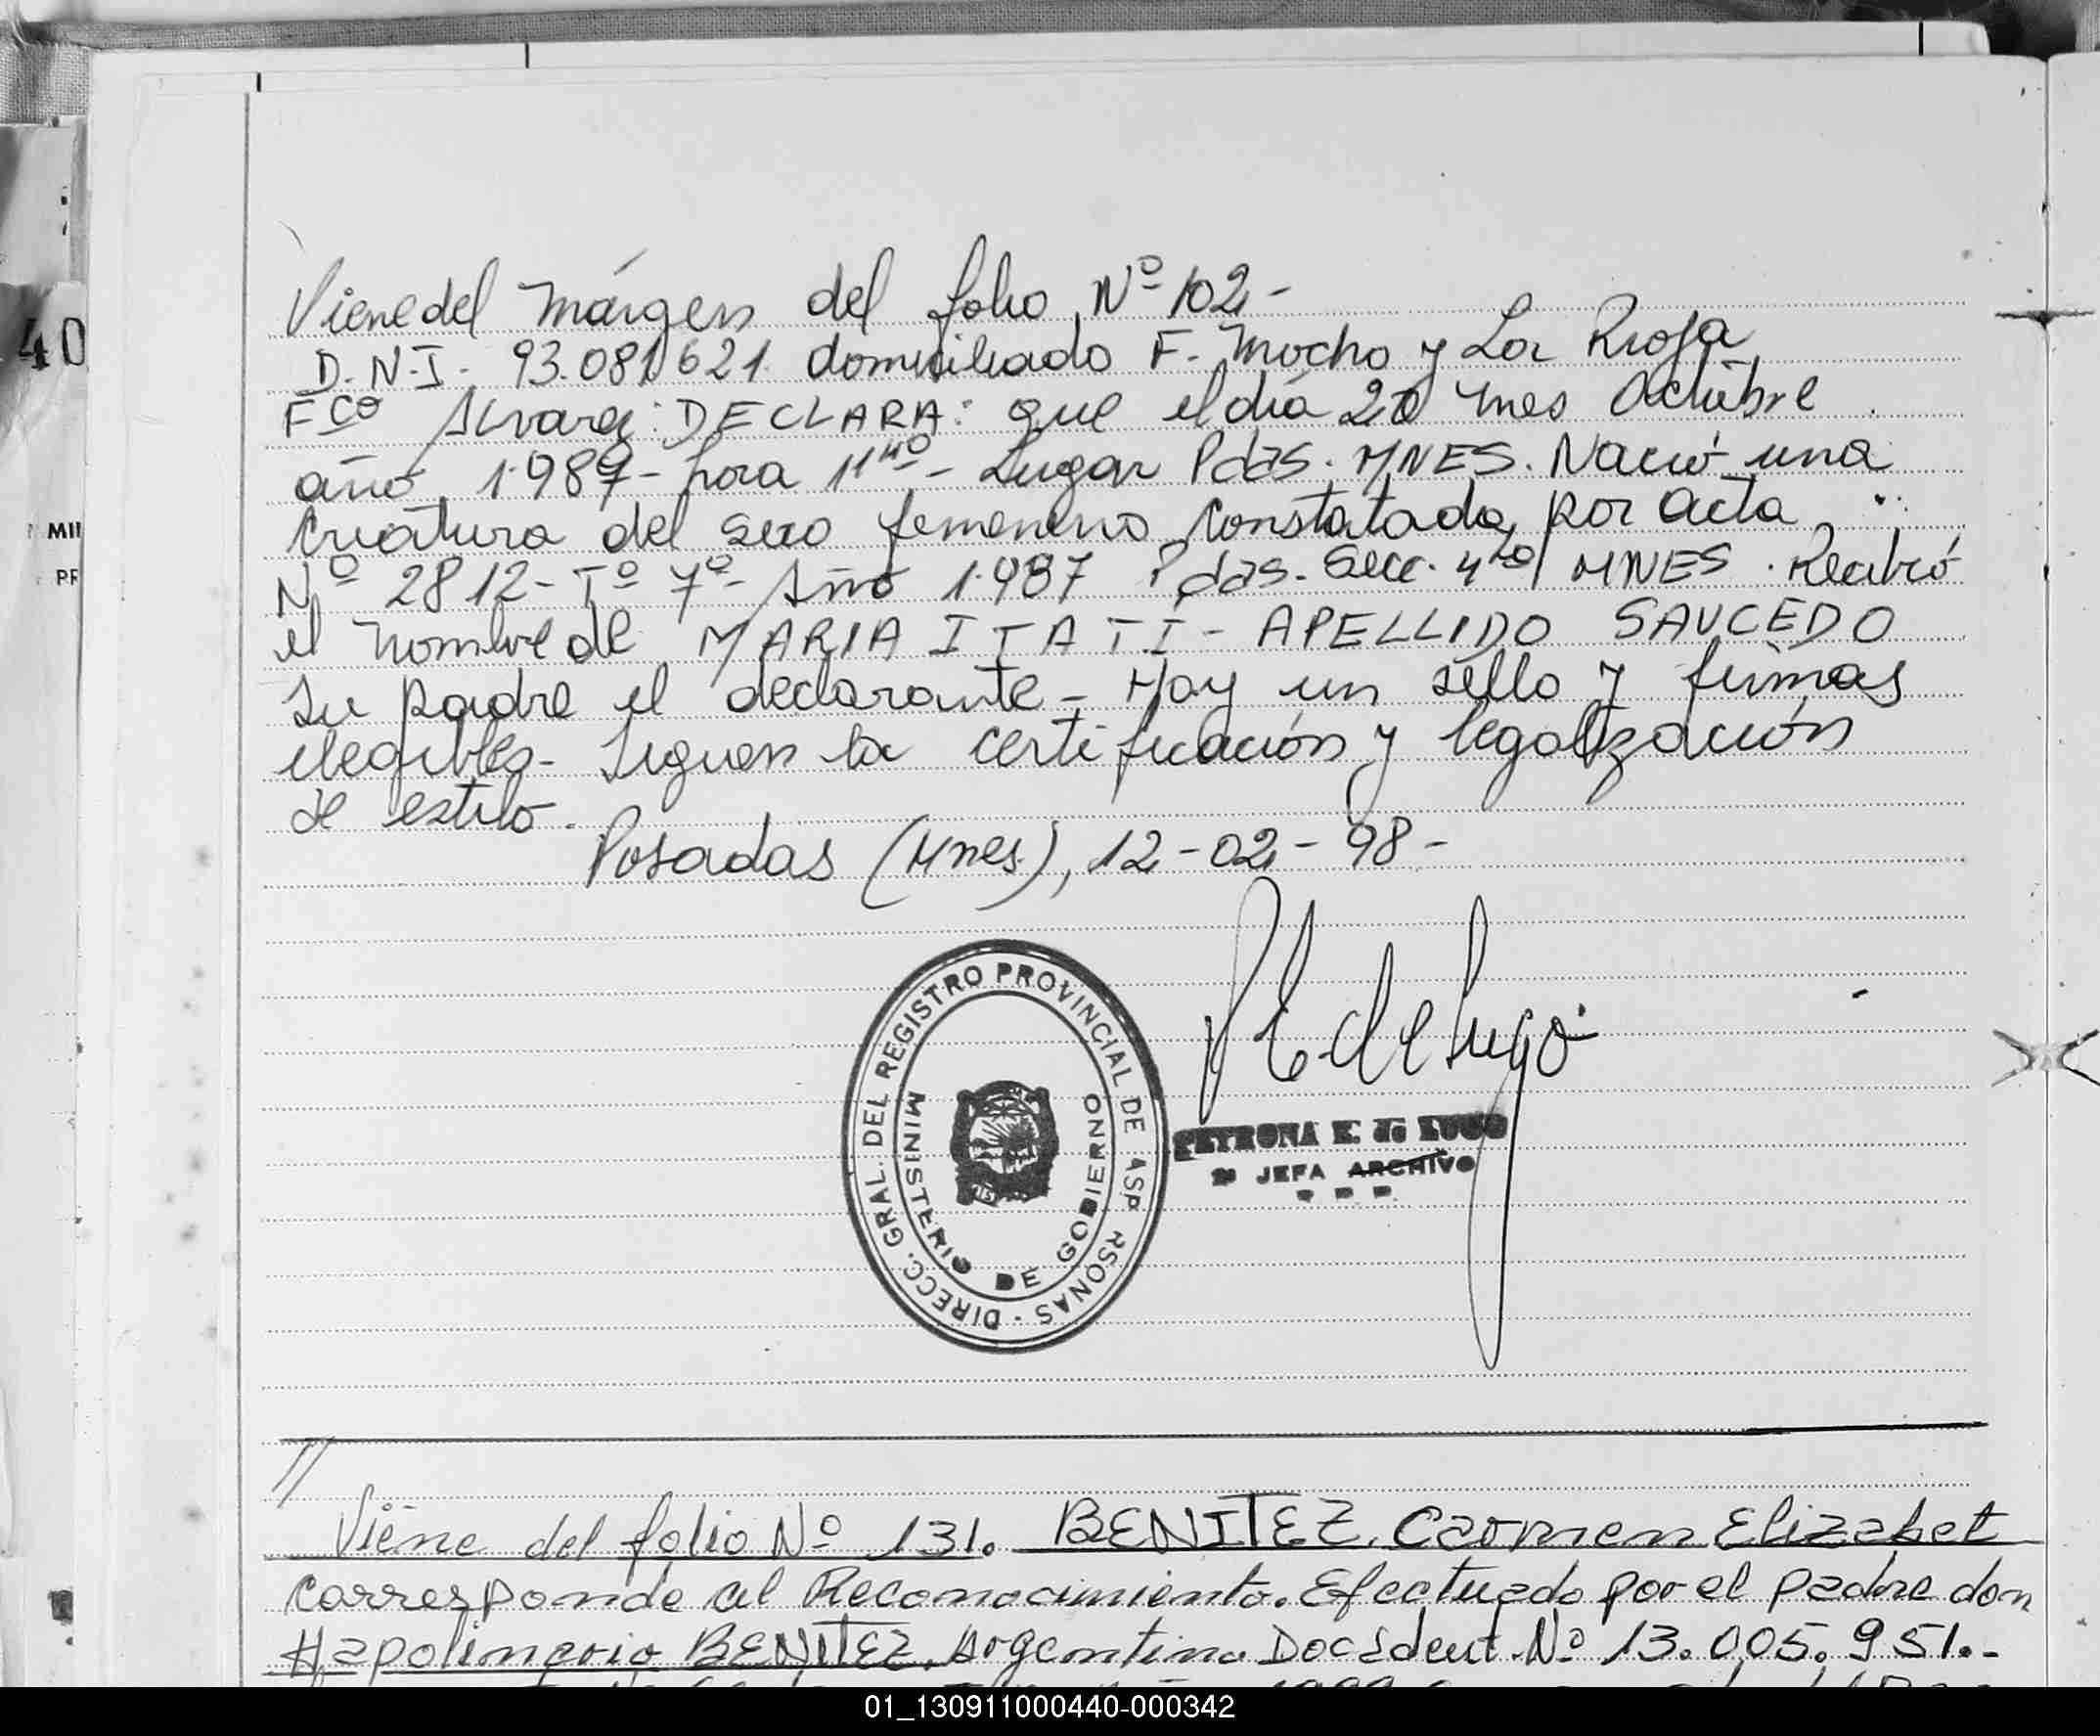 40
MII
PR
Viene del márgen del folio Nº 102 -
D.N.I. 93.081621 domiciliado F. Mocho y La Rioja
Fco Alvarez: DECLARA: que el día 20 mes Octubre
año 1.987 - hora 11 - Lugar Pdas. MNES. Nació una
criatura del sexo femenino constatada por acta
Nº 2812 - Tº 7º - Año 1.987 Pdas. Secc. 4ta MNES. Recibió
el nombre de MARIA ITATI - APELLIDO SAUCEDO
su padre el declarante - Hay un sello y firmas
ilegibles - Siguen la certificación y legalización
de estilo.
Posadas (Mnes), 12 - 02 - 98 -
DIRECC. GRAL. DEL REGISTRO PROVINCIAL DE PERSONAS -
MINISTERIO DE GOBIERNO
P E de Lugo
PETRONA E. de LUGO
JEFA ARCHIVO
//
Viene del folio Nº 131. BENITEZ, Carmen Elizabet
corresponde al Reconocimiento. Efectuado por el padre don
Hapolinario BENITEZ, Argentino Doc Ident. Nº 13.005.951.-
01_130911000440-000342